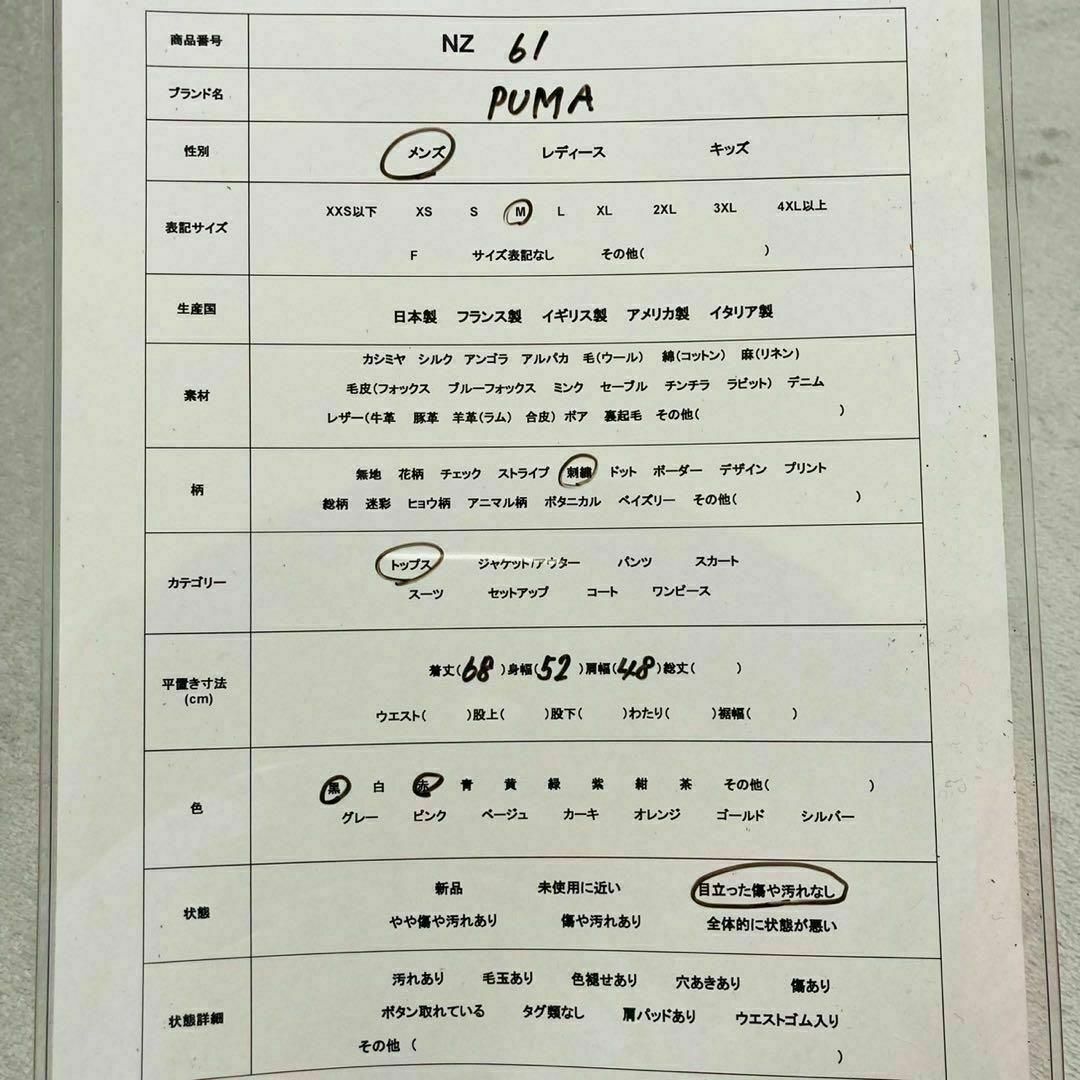 商品番号 NZ 61
ブランド名 PUMA
性別 メンズ レディース キッズ
表記サイズ
XXS以下 XS S M L XL 2XL 3XL 4XL以上
F サイズ表記なし その他( )
生産国 日本製 フランス製 イギリス製 アメリカ製 イタリア製
素材
カシミヤ シルク アンゴラ アルパカ 毛(ウール) 綿(コットン) 麻(リネン)
毛皮(フォックス ブルーフォックス ミンク セーブル チンチラ ラビット) デニム
レザー(牛革 豚革 羊革(ラム) 合皮) ボア 裏起毛 その他( )
柄
無地 花柄 チェック ストライプ 刺繍 ドット ボーダー デザイン プリント
総柄 迷彩 ヒョウ柄 アニマル柄 ボタニカル ペイズリー その他( )
カテゴリー
トップス ジャケット/アウター パンツ スカート
スーツ セットアップ コート ワンピース
平置き寸法
(cm)
着丈(68)身幅(52)肩幅(48)総丈( )
ウエスト( )股上( )股下( )わたり( )裾幅( )
色
黒 白 赤 青 黄 緑 紫 紺 茶 その他( )
グレー ピンク ベージュ カーキ オレンジ ゴールド シルバー
状態
新品 未使用に近い 目立った傷や汚れなし
やや傷や汚れあり 傷や汚れあり 全体的に状態が悪い
状態詳細
汚れあり 毛玉あり 色褪せあり 穴あきあり 傷あり
ボタン取れている タグ類なし 肩パッドあり ウエストゴム入り
その他 ( )